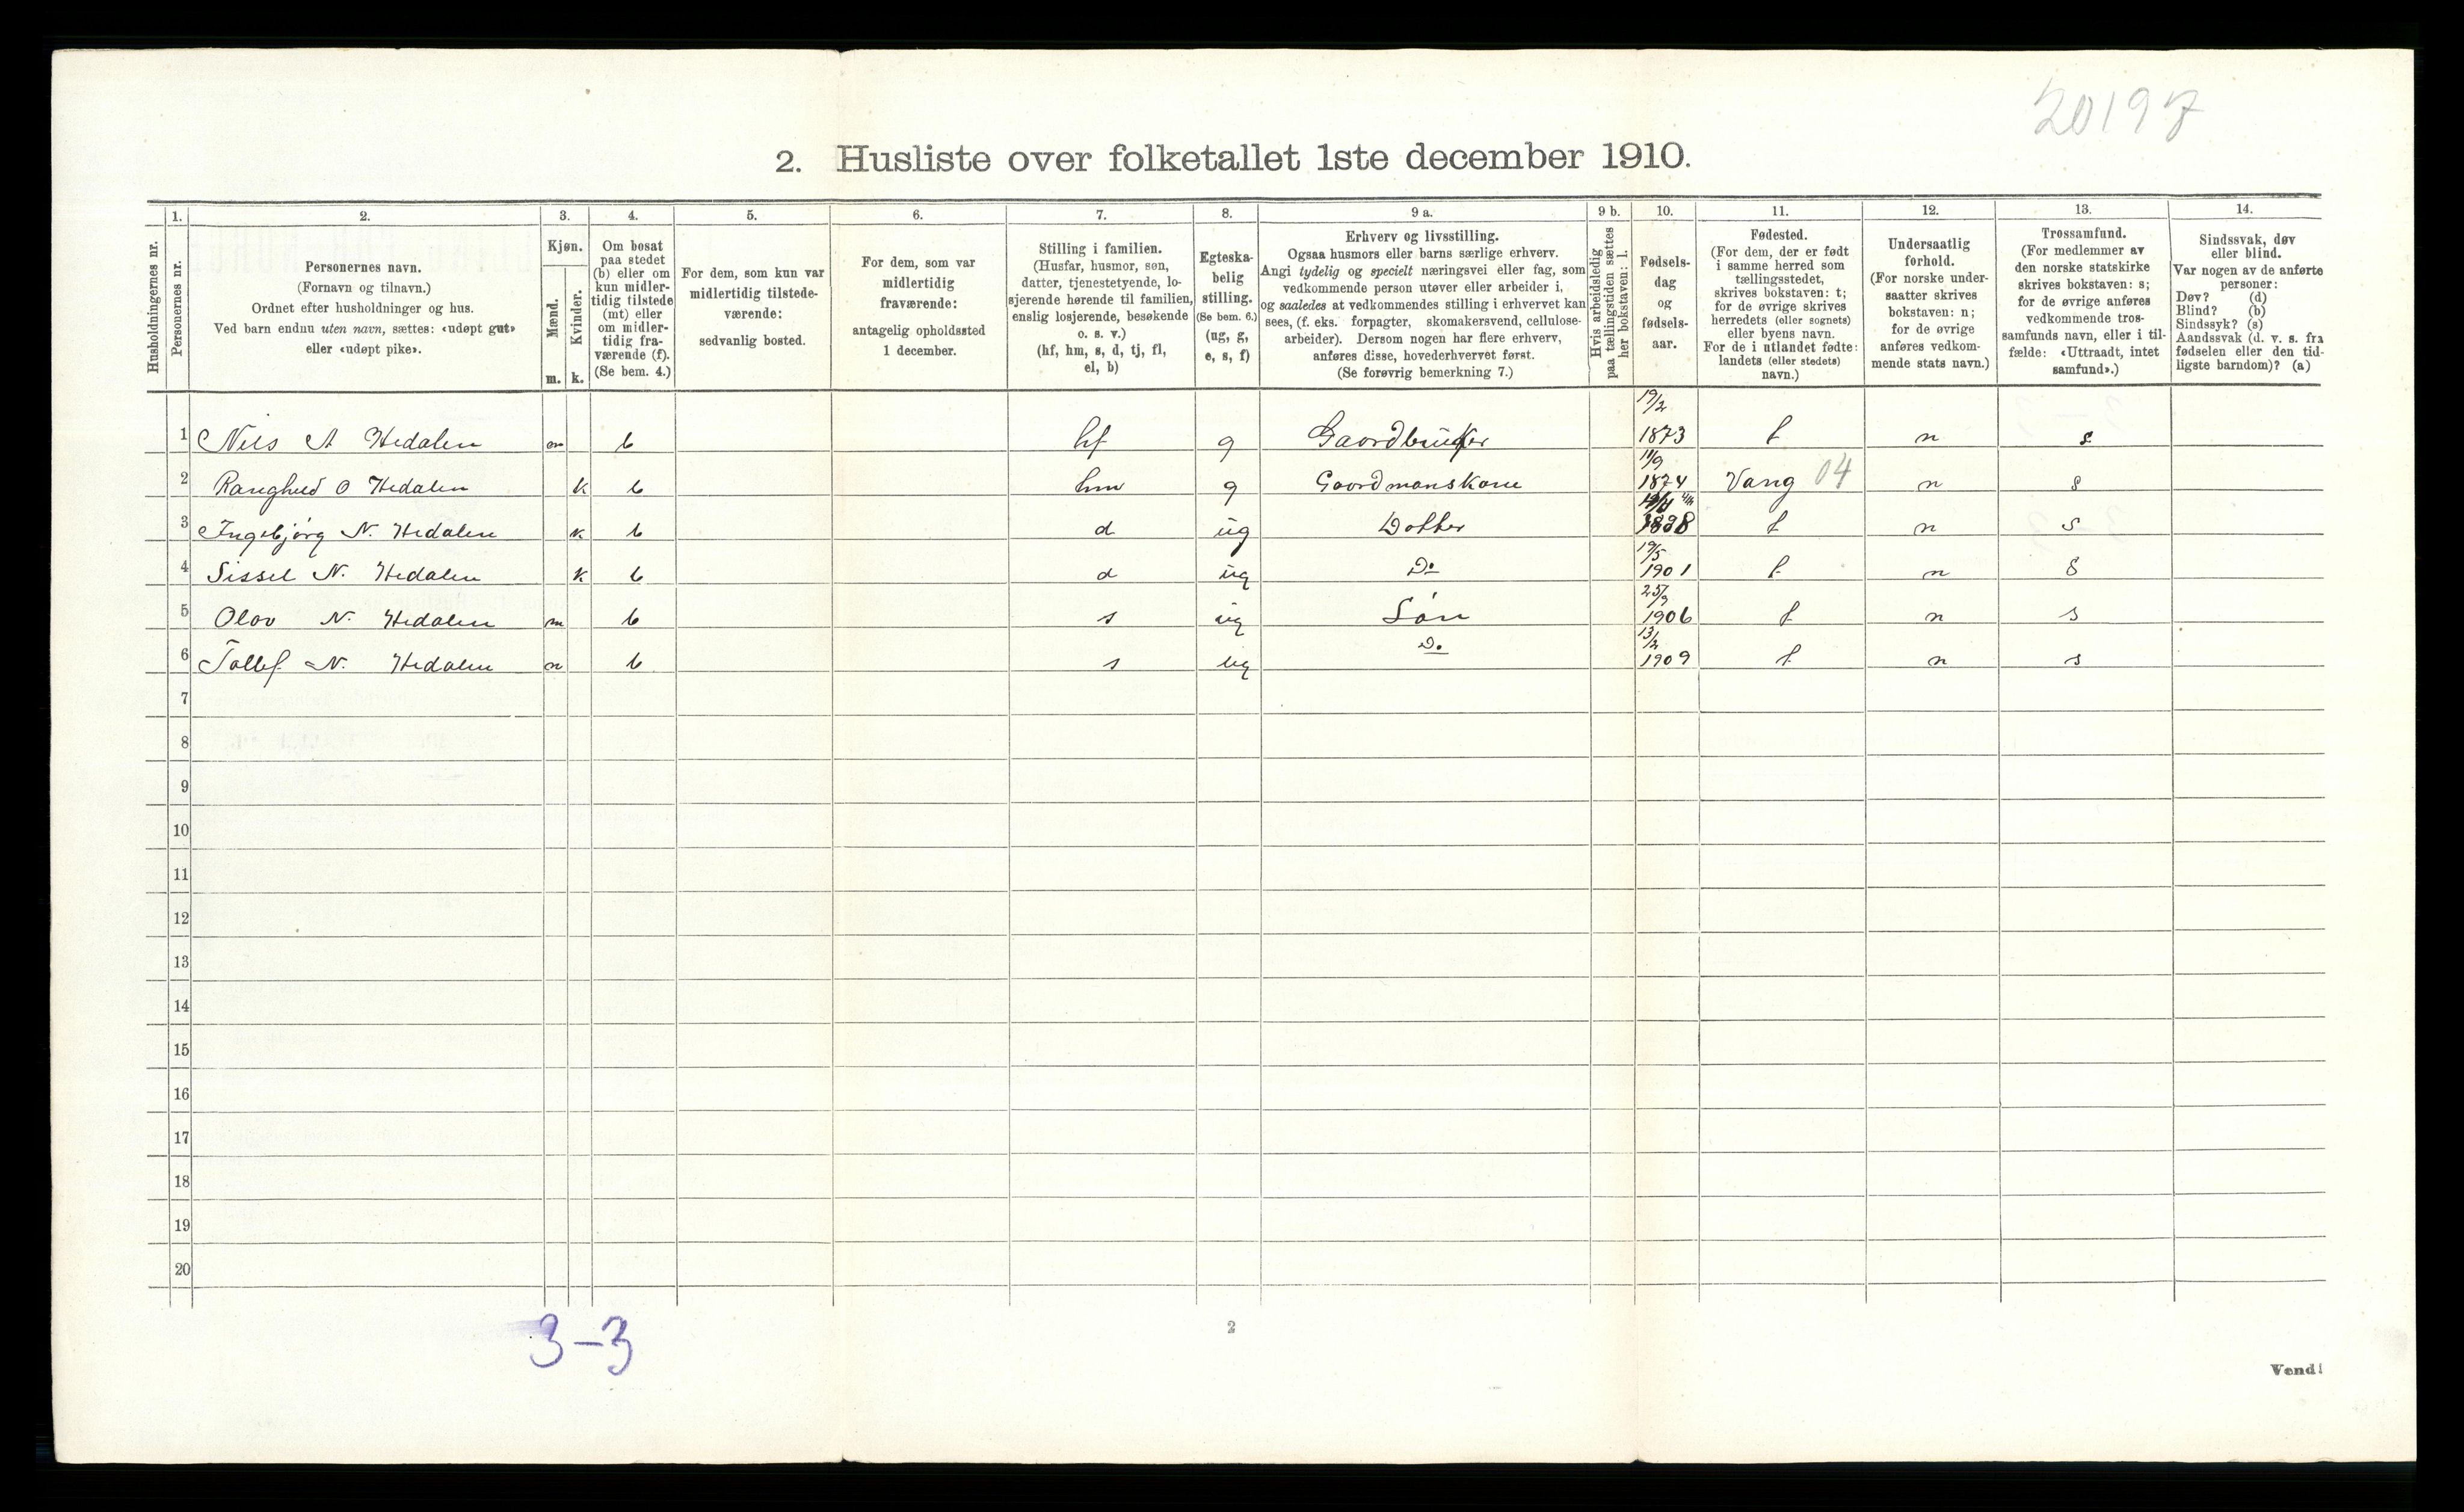 20197
2. Husliste over folketallet 1ste december 1910.
Husholdningernes nr.
1.
Personernes nr.
2.
Personernes navn.
(Fornavn og tilnavn.)
Ordnet efter husholdninger og hus.
Ved barn endnu uten navn, sættes: «udøpt gut»
eller «udøpt pike».
3.
Kjøn.
Mænd.
m.
Kvinder.
k.
4.
Om bosat
paa stedet
(b) eller om
kun midler-
tidig tilstede
(mt) eller
om midler-
tidig fra-
værende (f).
(Se bem. 4.)
5.
For dem, som kun var
midlertidig tilstede-
værende:
sedvanlig bosted.
6.
For dem, som var
midlertidig
fraværende:
antagelig opholdssted
1 december.
7.
Stilling i familien.
(Husfar, husmor, søn,
datter, tjenestetyende, lo-
sjerende hørende til familien,
enslig losjerende, besøkende
o. s. v.)
(hf, hm, s, d, tj, fl,
el, b)
8.
Egteska-
belig
stilling.
(Se bem. 6.)
(ug, g,
e, s, f)
9 a.
Erhverv og livsstilling.
Ogsaa husmors eller barns særlige erhverv.
Angi tydelig og specielt næringsvei eller fag, som
vedkommende person utøver eller arbeider i,
og saaledes at vedkommendes stilling i erhvervet kan
sees, (f. eks. forpagter, skomakersvend, cellulose-
arbeider). Dersom nogen har flere erhverv,
anføres disse, hovederhvervet først.
(Se forøvrig bemerkning 7.)
9 b.
Hvis arbeidsledig
paa tællingstiden sættes
her bokstaven: l.
10.
Fødsels-
dag
og
fødsels-
aar.
11.
Fødested.
(For dem, der er født
i samme herred som
tællingsstedet,
skrives bokstaven: t;
for de øvrige skrives
herredets (eller sognets)
eller byens navn.
For de i utlandet fødte:
landets (eller stedets)
navn.)
12.
Undersaatlig
forhold.
(For norske under-
saatter skrives
bokstaven: n;
for de øvrige
anføres vedkom-
mende stats navn.)
13.
Trossamfund.
(For medlemmer av
den norske statskirke
skrives bokstaven: s;
for de øvrige anføres
vedkommende tros-
samfunds navn, eller i til-
fælde: «Uttraadt, intet
samfund».)
14.
Sindssvak, døv
eller blind.
Var nogen av de anførte
personer:
Døv? (d)
Blind? (b)
Sindssyk? (s)
Aandssvak (d. v. s. fra
fødselen eller den tid-
ligste barndom)? (a)
1 Nils A Hedalen m b hf g Gaardbruker 19/2 1873 t n s
2 Ranghild O Hedalen k b hm g Gaardmanskone 11/9 1874 Vang 04 n s
3 Ingebjørg N. Hedalen k b d ug Dotter 1898 t n s
4 Sissel N. Hedalen k b d ug Do 19/5 1901 t n s
5 Olav N. Hedalen m b s ug Søn 25/9 1906 t n s
6 Tollef N. Hedalen m b s ug Do. 13/2 1909 t n s
7
8
9
10
11
12
13
14
15
16
17
18
19
20
3-3
2
Vend!